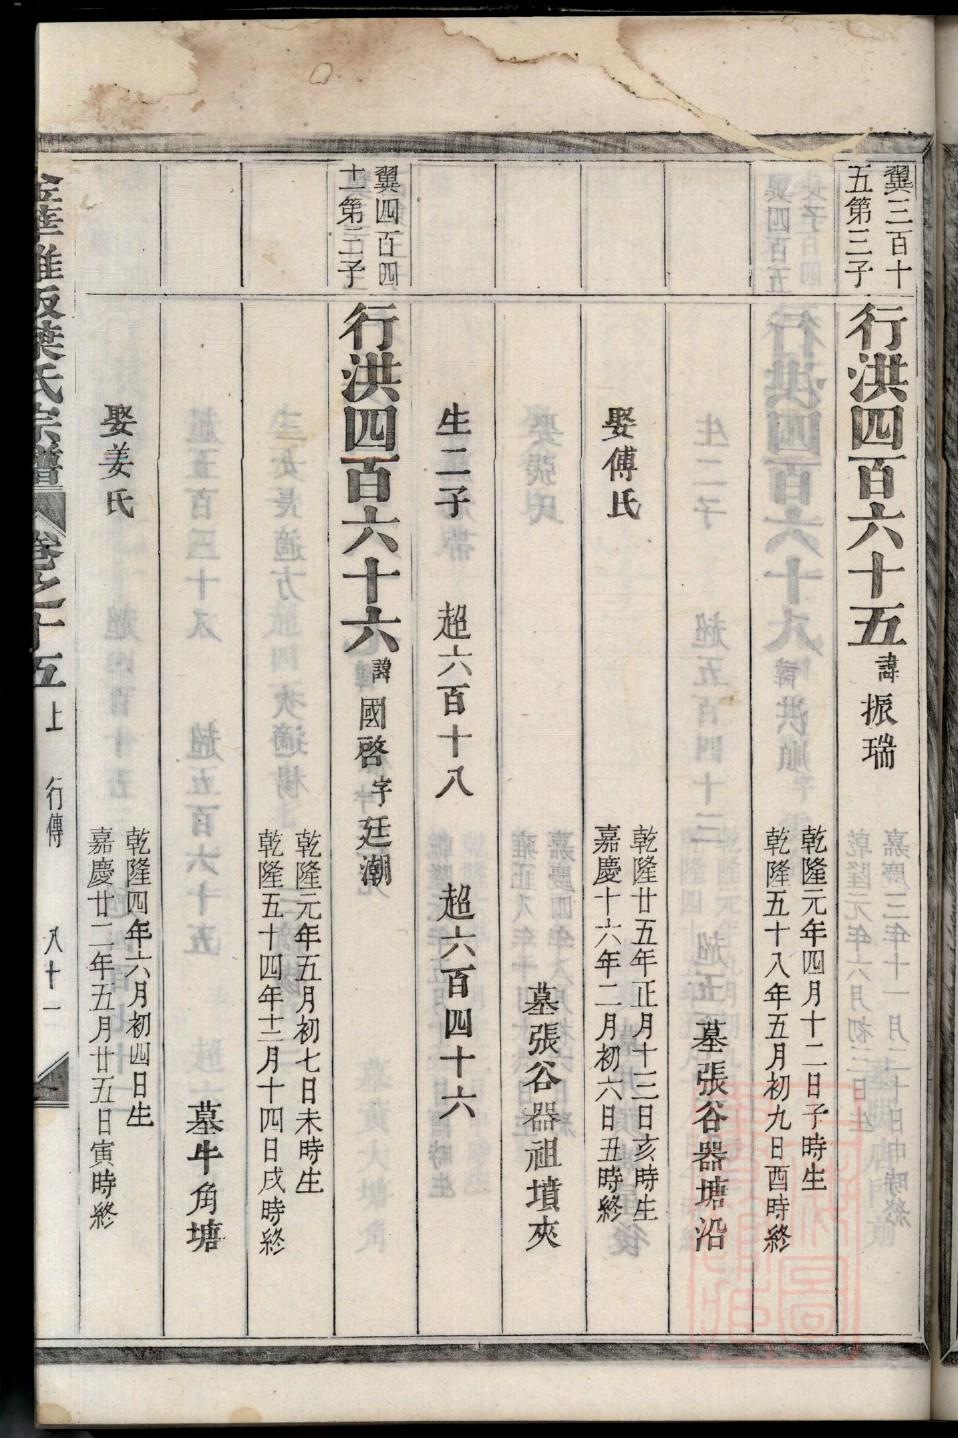 翼三百十
五第三子
行洪四百六十五諱振瑞
乾隆元年四月十二日子時生
乾隆五十八年五月初九日酉時終
墓張谷器塘沿
娶傅氏
乾隆廿五年正月十三日亥時生
嘉慶十六年二月初六日丑時終
墓張谷器祖墳夾
生二子 超六百十八 超六百四十六
翼四百四
十第三子
行洪四百六十六諱國啓字廷潮
乾隆元年五月初七日未時生
乾隆五十四年十二月十四日戌時終
墓牛角塘
娶姜氏
乾隆四年六月初四日生
嘉慶廿二年五月廿五日寅時終
氏宗譜 卷之十五上 行傳 八十一